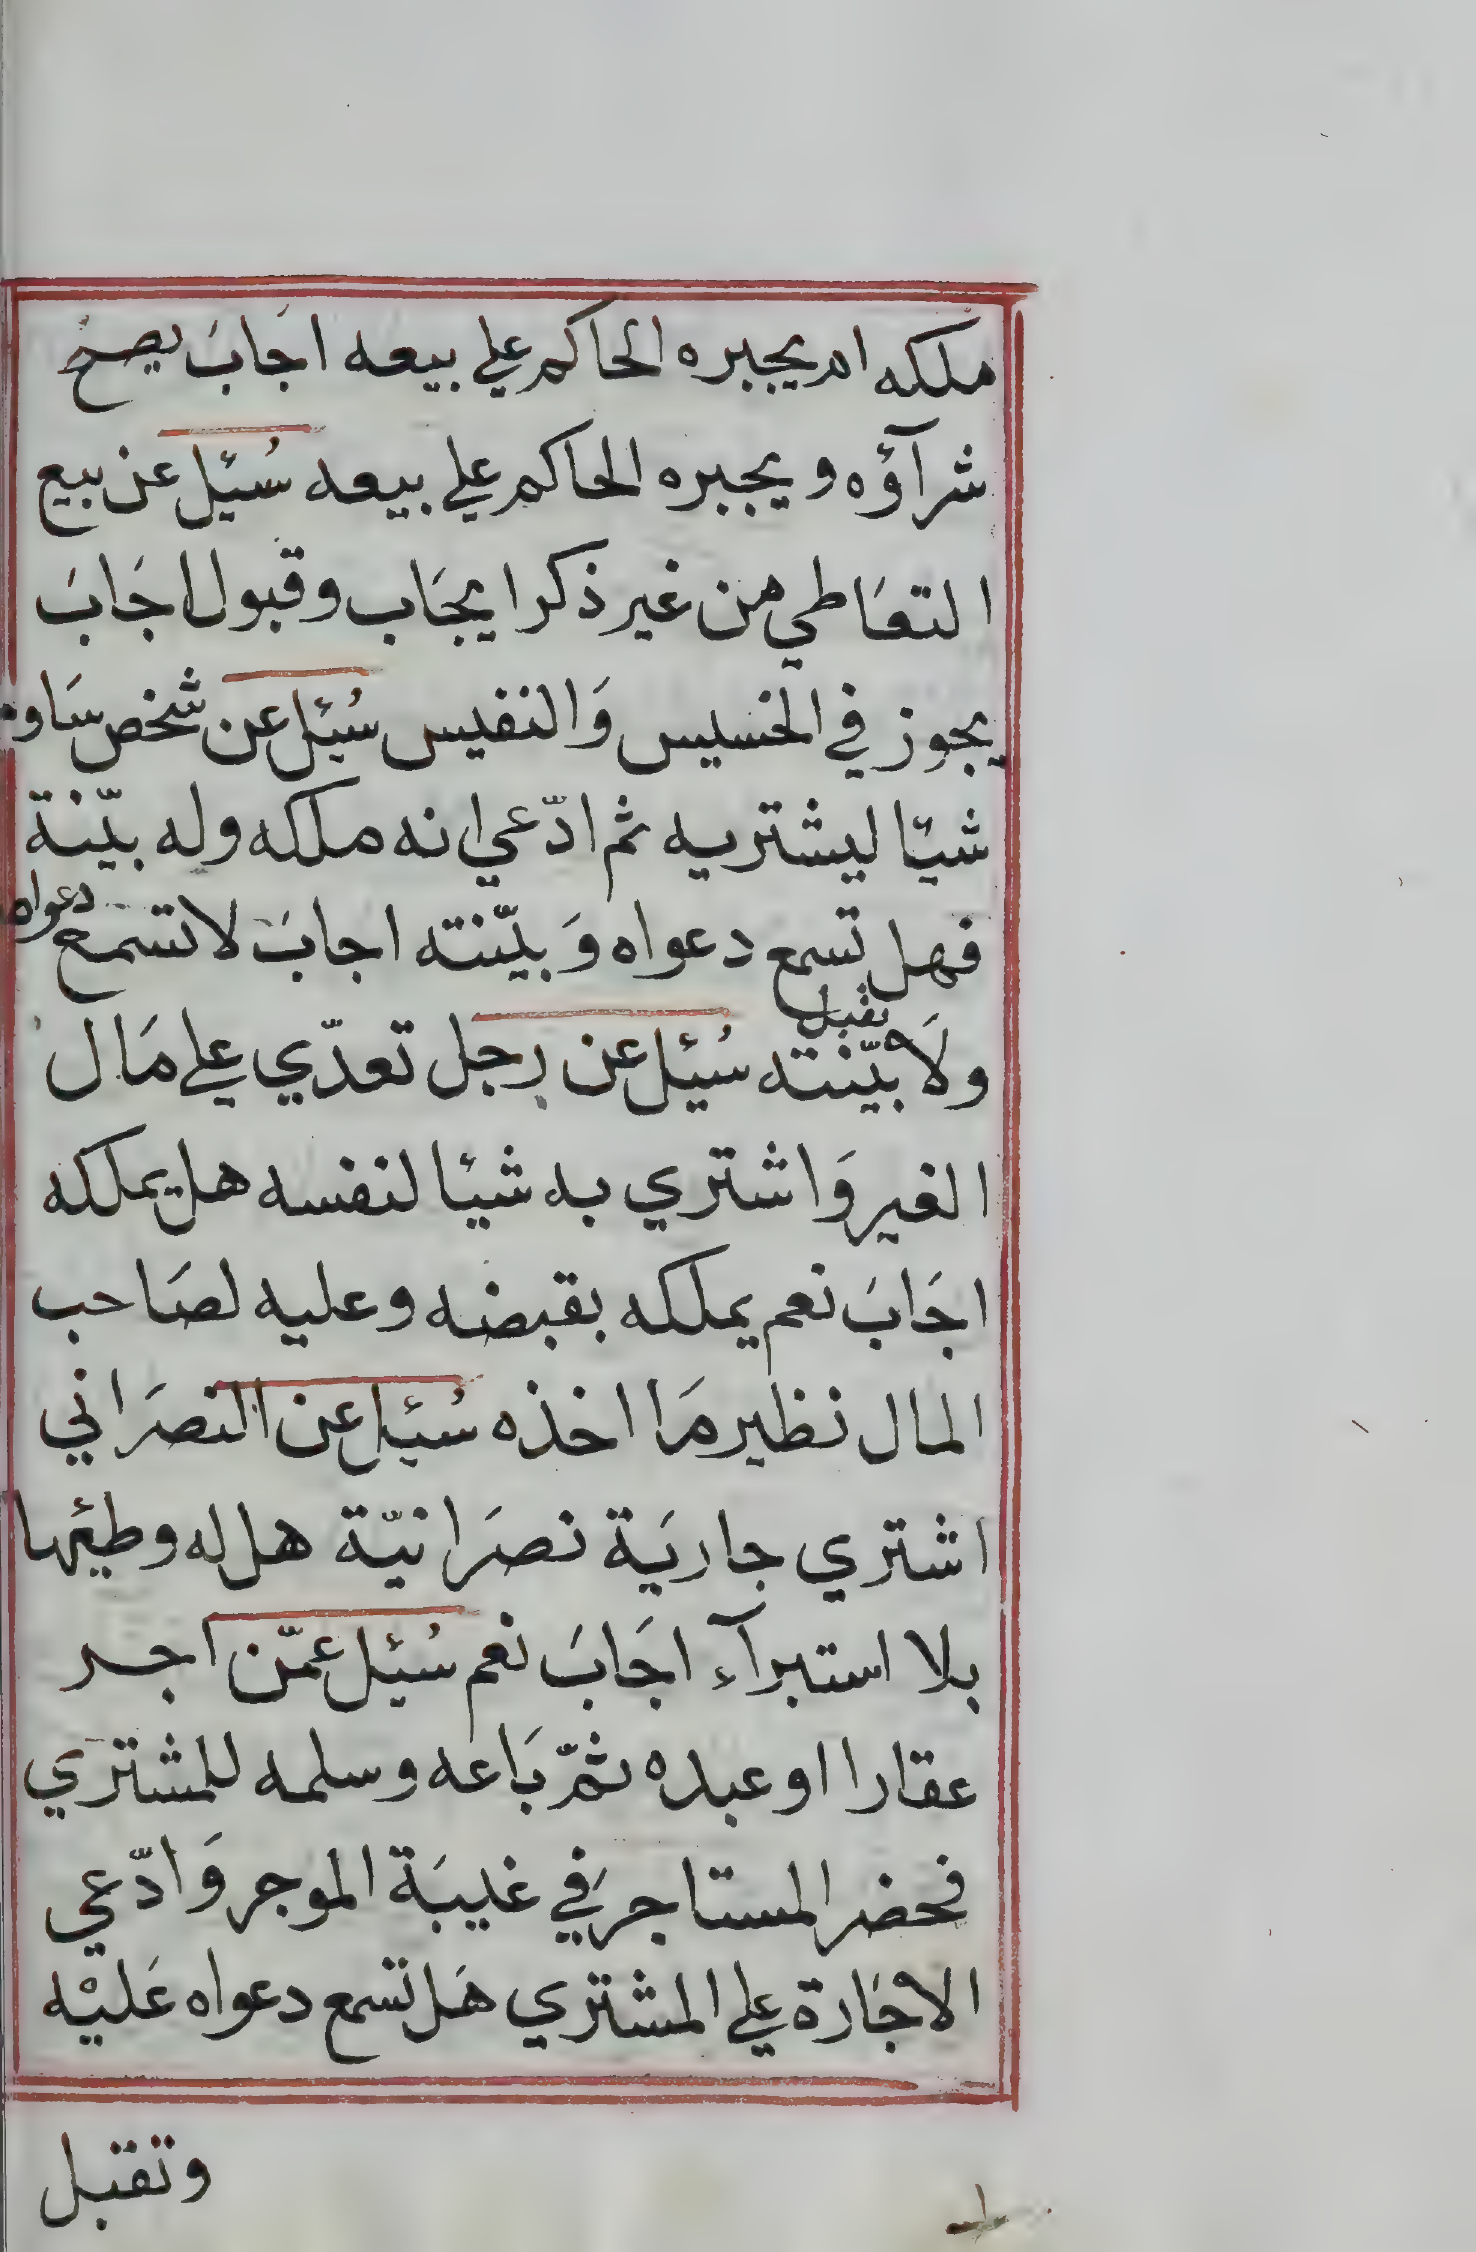 ملكه ام يجبره الحاكم علي بيعه اجَابَ يصح
شرآؤه ويجبره الحاكم علي بيعه سُئيل عن بيع
التعَاطي من غير ذكر ايجَاب وقبول اجَابَ
يجوز في الخسيس وَالنفيس سُئيل عن شخص سَاوم
شيئا ليشتريه ثم ادّعي انه ملكه وله بيّنة
فهل تسمع دعواه وَبيّنته اجابَ لا تسمع دعواه
ولَا تقبل بيّنته سُئيل عن رجل تعدّي علي مَال
الغير وَاشتري به شيئا لنفسه هل يملكه
اجَابَ نعم يملكه بقبضه وعليه لصَاحب
المال نظير مَا اخذه سُئيل عن النصرَاني
اشتري جاريَة نصرَانيّة هل له وطيئها
بلا استبرآء اجَابَ نعم سُئيل عمّن اجر
عقارا او عبده ثمّ بَاعه وسلمه للمشتري
فحضر المستاجر في غيبَة الموجر وَادّعي
الاجَارة علي المشتري هَل تسمع دعواه عَليْه
وتقبل